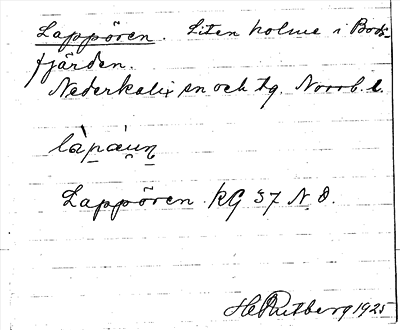 Lappören. Liten holme i Bods-
fjärden.
Nederkalix sn och tg. Norrb. l.
Lappören. KG 37 N. O.
1925